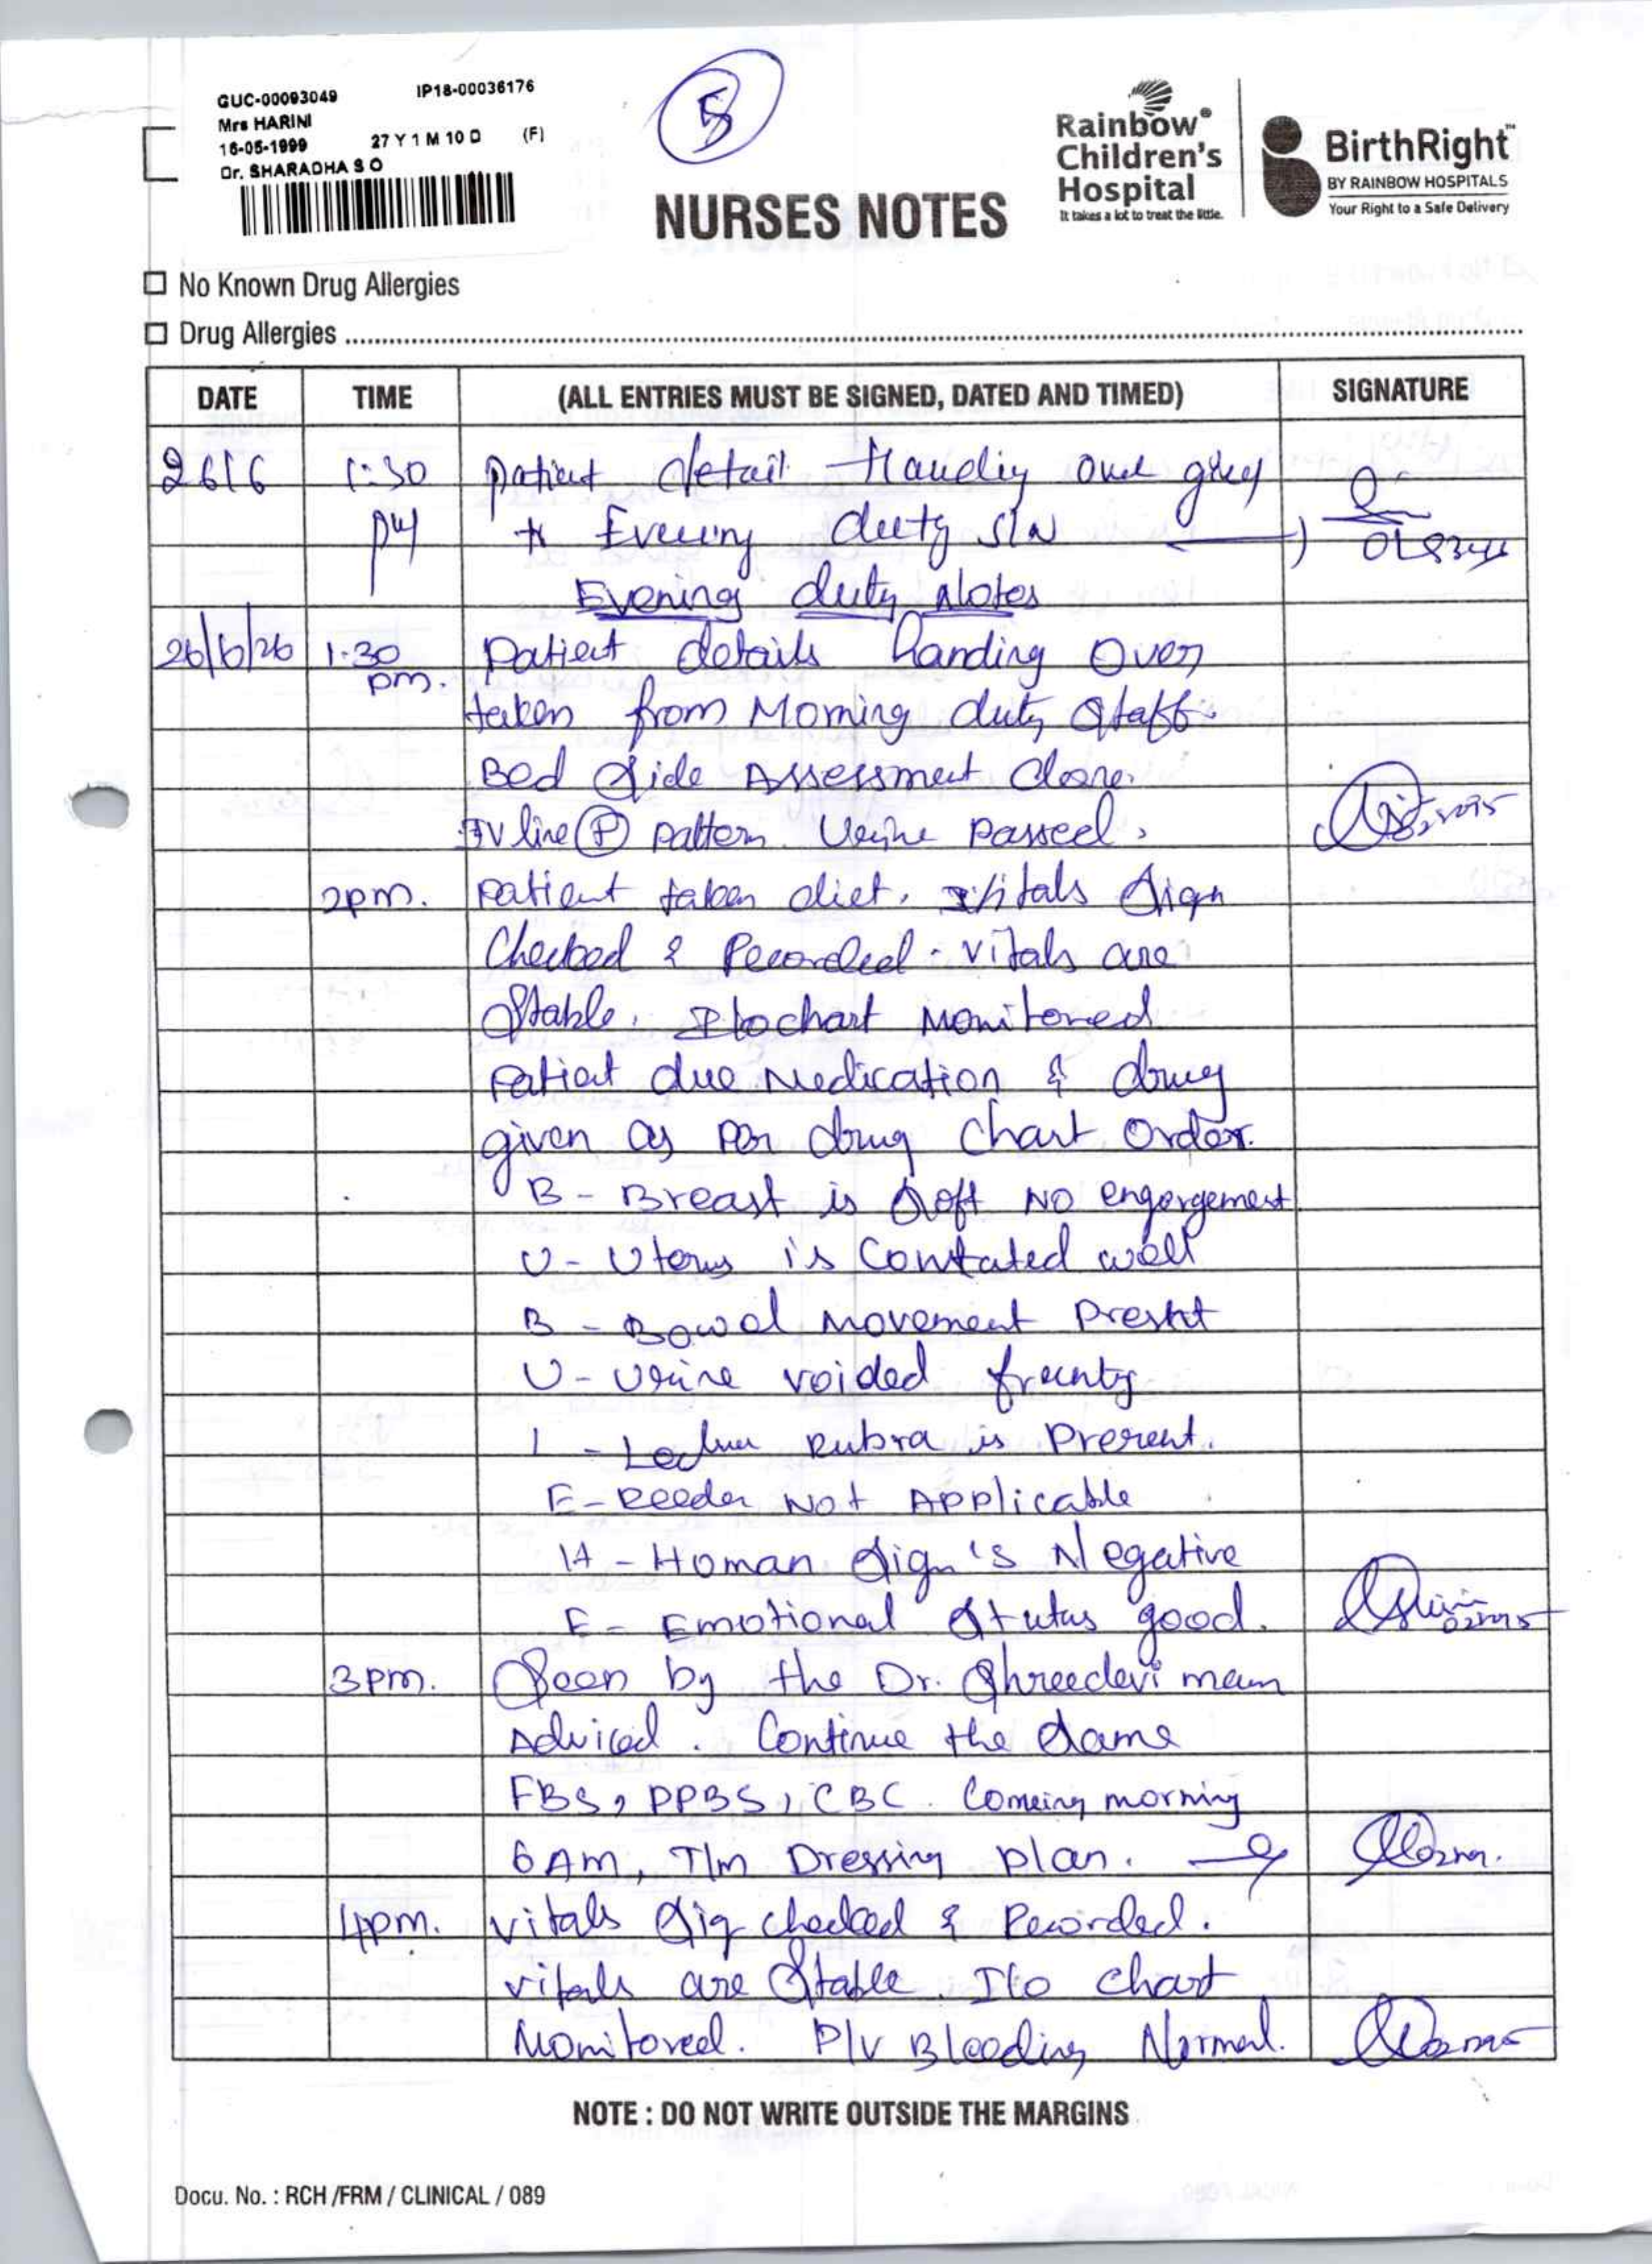 GUC-00093049 IP18-00036176
Mrs HARINI
16-05-1999 27 Y 1 M 10 D (F)
Dr. SHARADHA S O
5
Rainbow®
Children's
Hospital
It takes a lot to treat the little.
BirthRight™
BY RAINBOW HOSPITALS
Your Right to a Safe Delivery
NURSES NOTES
No Known Drug Allergies
Drug Allergies
DATE TIME (ALL ENTRIES MUST BE SIGNED, DATED AND TIMED) SIGNATURE
26/6 1:30 patient detail Handing over
pm Evening duty S/N
Evening duty Notes
26/6/26 1.30 Patient details handing over
pm. taken from Morning duty Staff.
Bed Side Assessment done.
IV line (P) pattern. Urine passed.
2pm. Patient taken diet. vitals sign
Checked & Recorded. vitals are
Stable. I/o chart Monitored
Patient due Medication & drug
given as per drug chart order.
B - Breast is soft NO engorgement
U - Uterus is Contated well
B - Bowel movement Presnt
U - Urine voided
L - Rubra is Present.
E - Reeder Not Applicable
H - Homan Sign's Negative
E - Emotional Status good.
3pm. Seen by the Dr. Shreedevi mam
Adviced. Continue the same
FBS, PPBS, CBC. Comeing morning
6 Am, T/m Dressing plan.
4pm. vitals sig checked & Recorded.
vitals are Stable. I/o chart
Monitored. P/v Bleeding Normal.
NOTE : DO NOT WRITE OUTSIDE THE MARGINS
Docu. No. : RCH /FRM / CLINICAL / 089